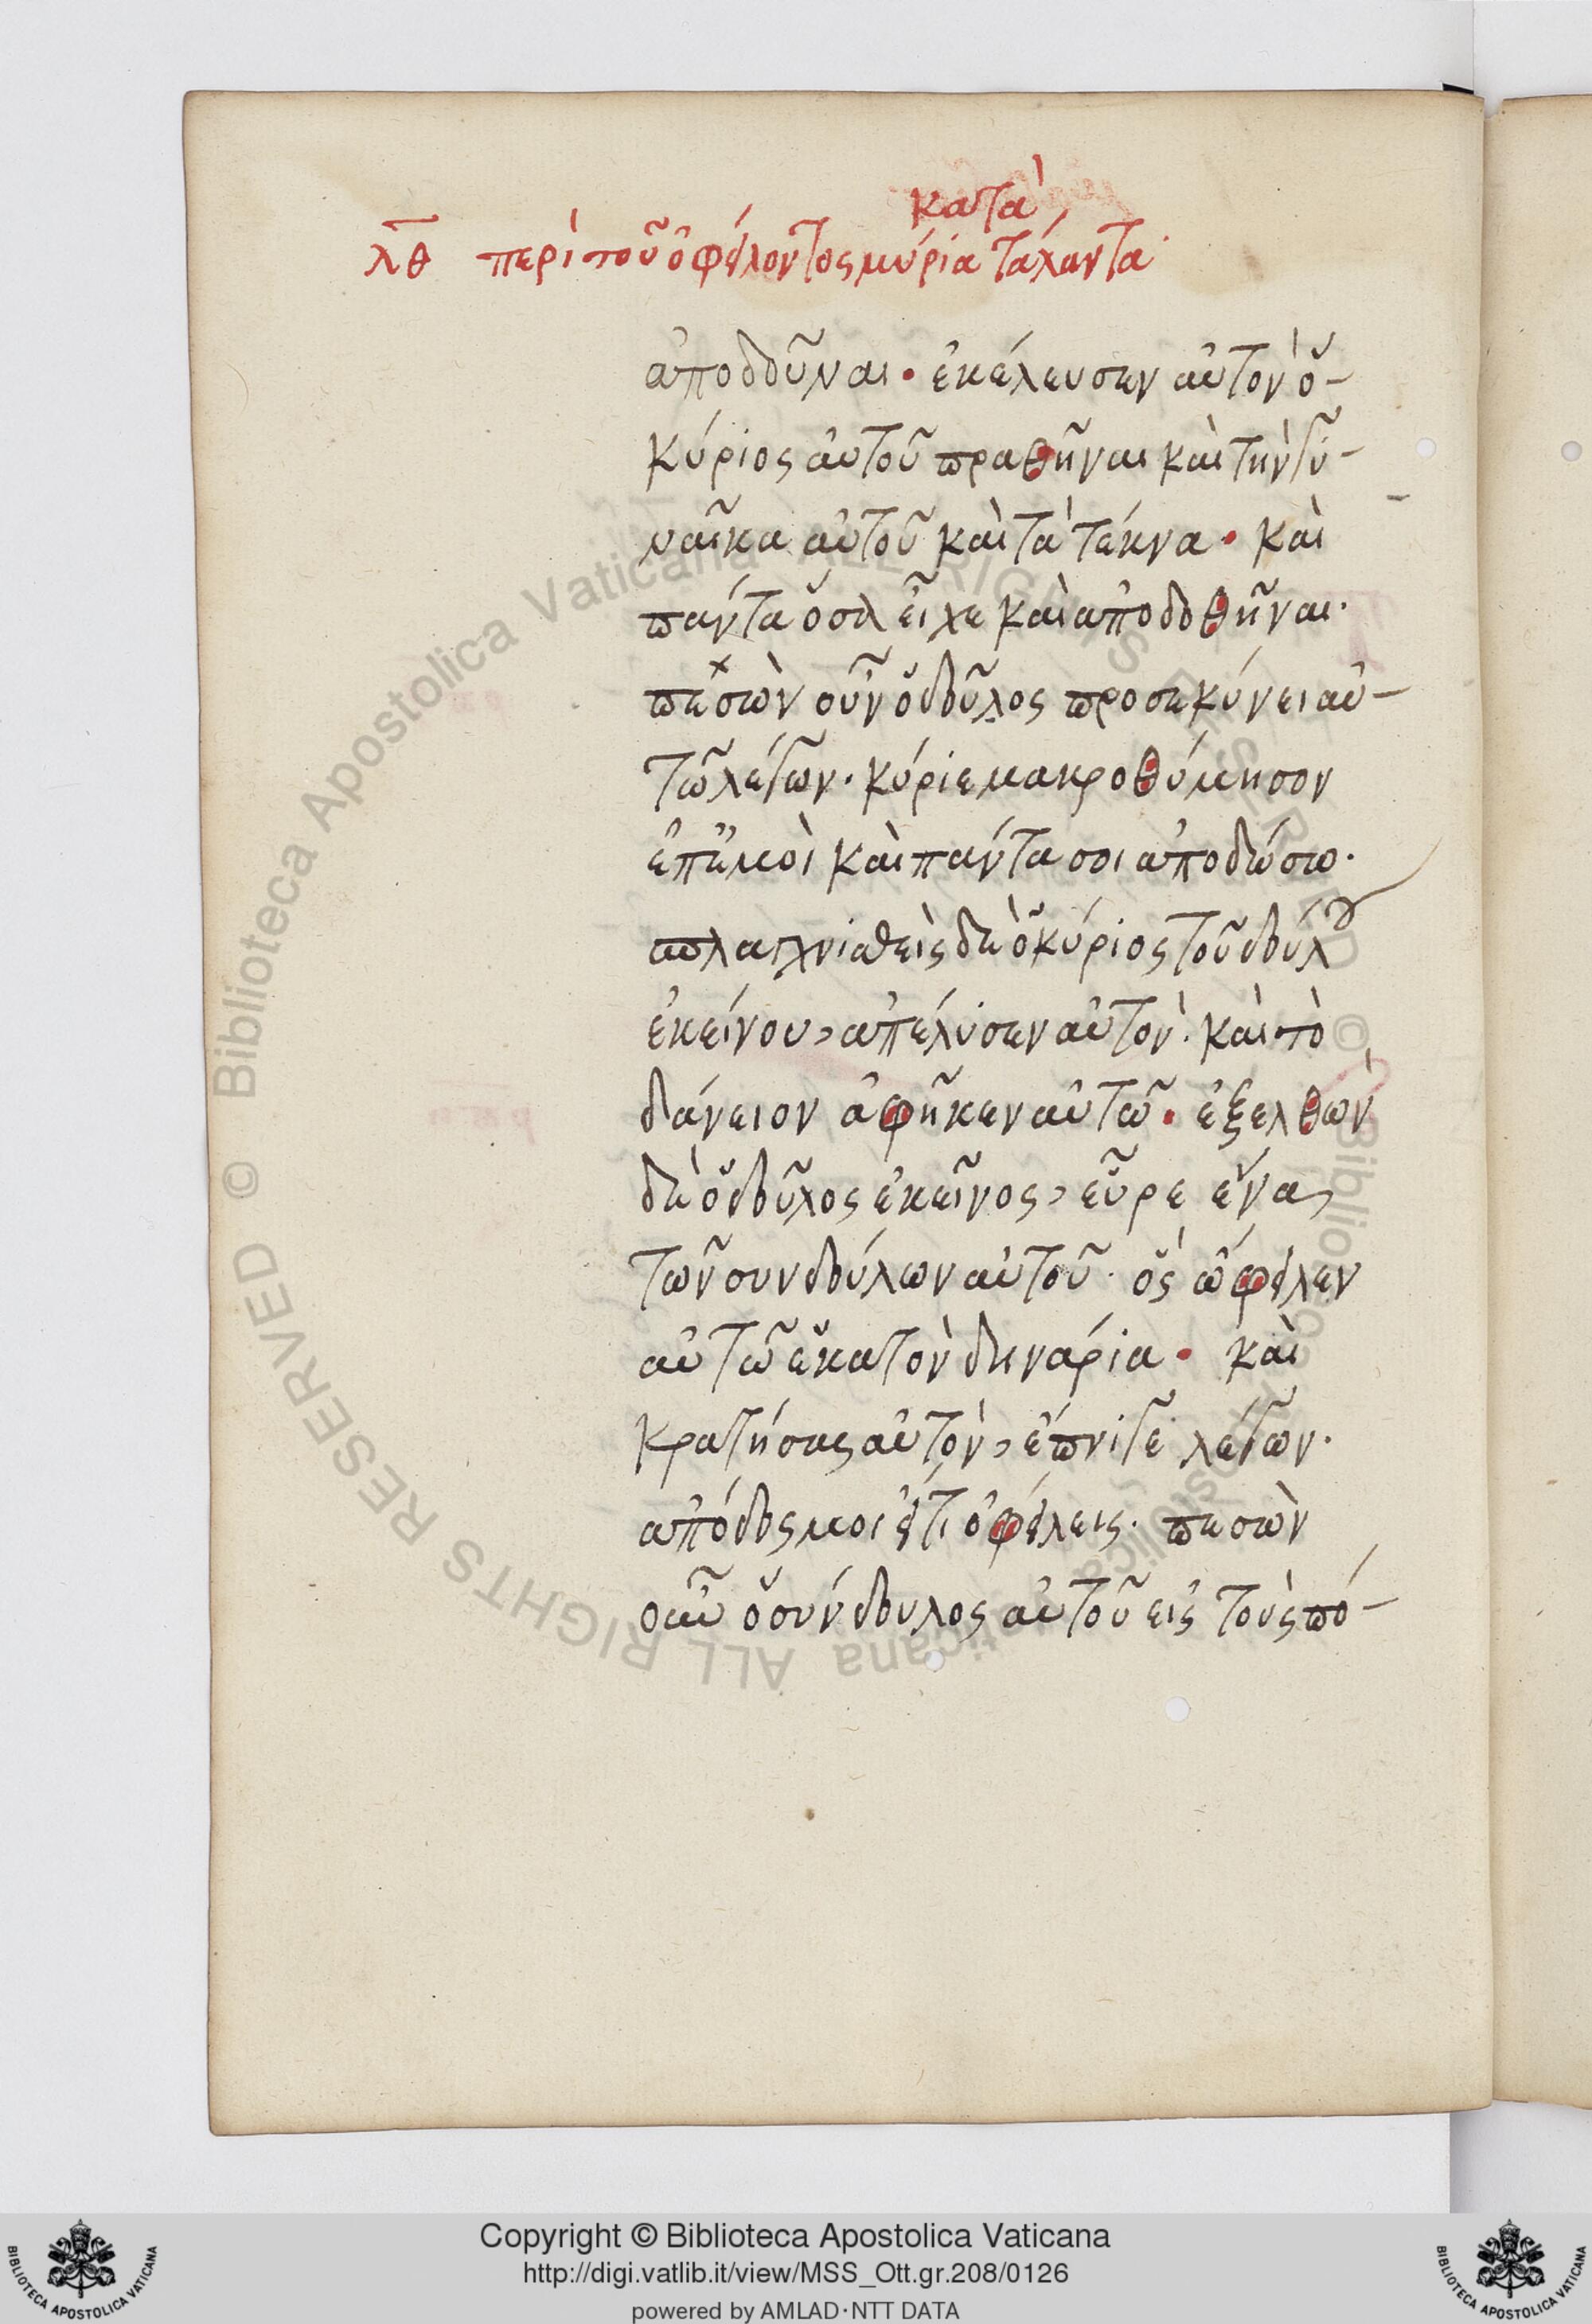 κατὰ
λθ περὶ τοῦ ὀφείλοντος μύρια τάλαντα
ἀποδοῦναι· ἐκέλευσεν αὐτὸν ὁ-
κύριος αὐτοῦ πραθῆναι καὶ τὴν γυ-
ναῖκα αὐτοῦ καὶ τὰ τέκνα· καὶ
πάντα ὅσα εἶχε καὶ ἀποδοθῆναι·
πεσὼν οὖν ὁ δοῦλος προσεκύνει αὐ-
τῶ λέγων· κύριε μακροθύμησον
ἐπ' ἐμοὶ καὶ πάντα σοι ἀποδώσω·
σπλαγχνισθεὶς δὲ ὁ κύριος τοῦ δούλου
ἐκείνου, ἀπέλυσεν αὐτὸν· καὶ τὸ
δάνειον ἀφῆκεν αὐτῶ· ἐξελθὼν
δὲ ὁ δοῦλος ἐκεῖνος, εὗρε ἕνα
τῶν συνδούλων αὐτοῦ· ὃς ὤφειλεν
αὐτῶ ἑκατὸν δηνάρια· καὶ
κρατήσας αὐτὸν, ἔπνιγε λέγων·
ἀπόδος μοι εἴ τι ὀφείλεις· πεσὼν
οὖν ὁ σύνδουλος αὐτοῦ εἰς τοὺς πό-
Copyright © Biblioteca Apostolica Vaticana
http://digi.vatlib.it/view/MSS_Ott.gr.208/0126
powered by AMLAD·NTT DATA